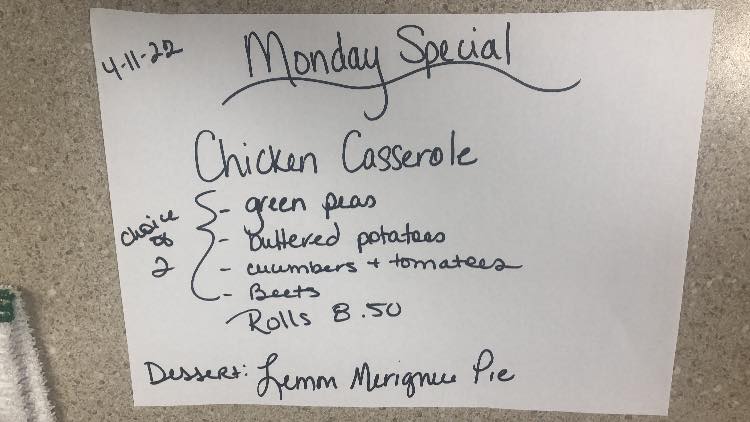 4-11-22
Monday Special
Chicken Casserole
choice of 2
- green peas
- buttered potatoes
- cucumbers + tomatoes
- Beets
Rolls 8.50
Dessert: Lemm Merignue Pie